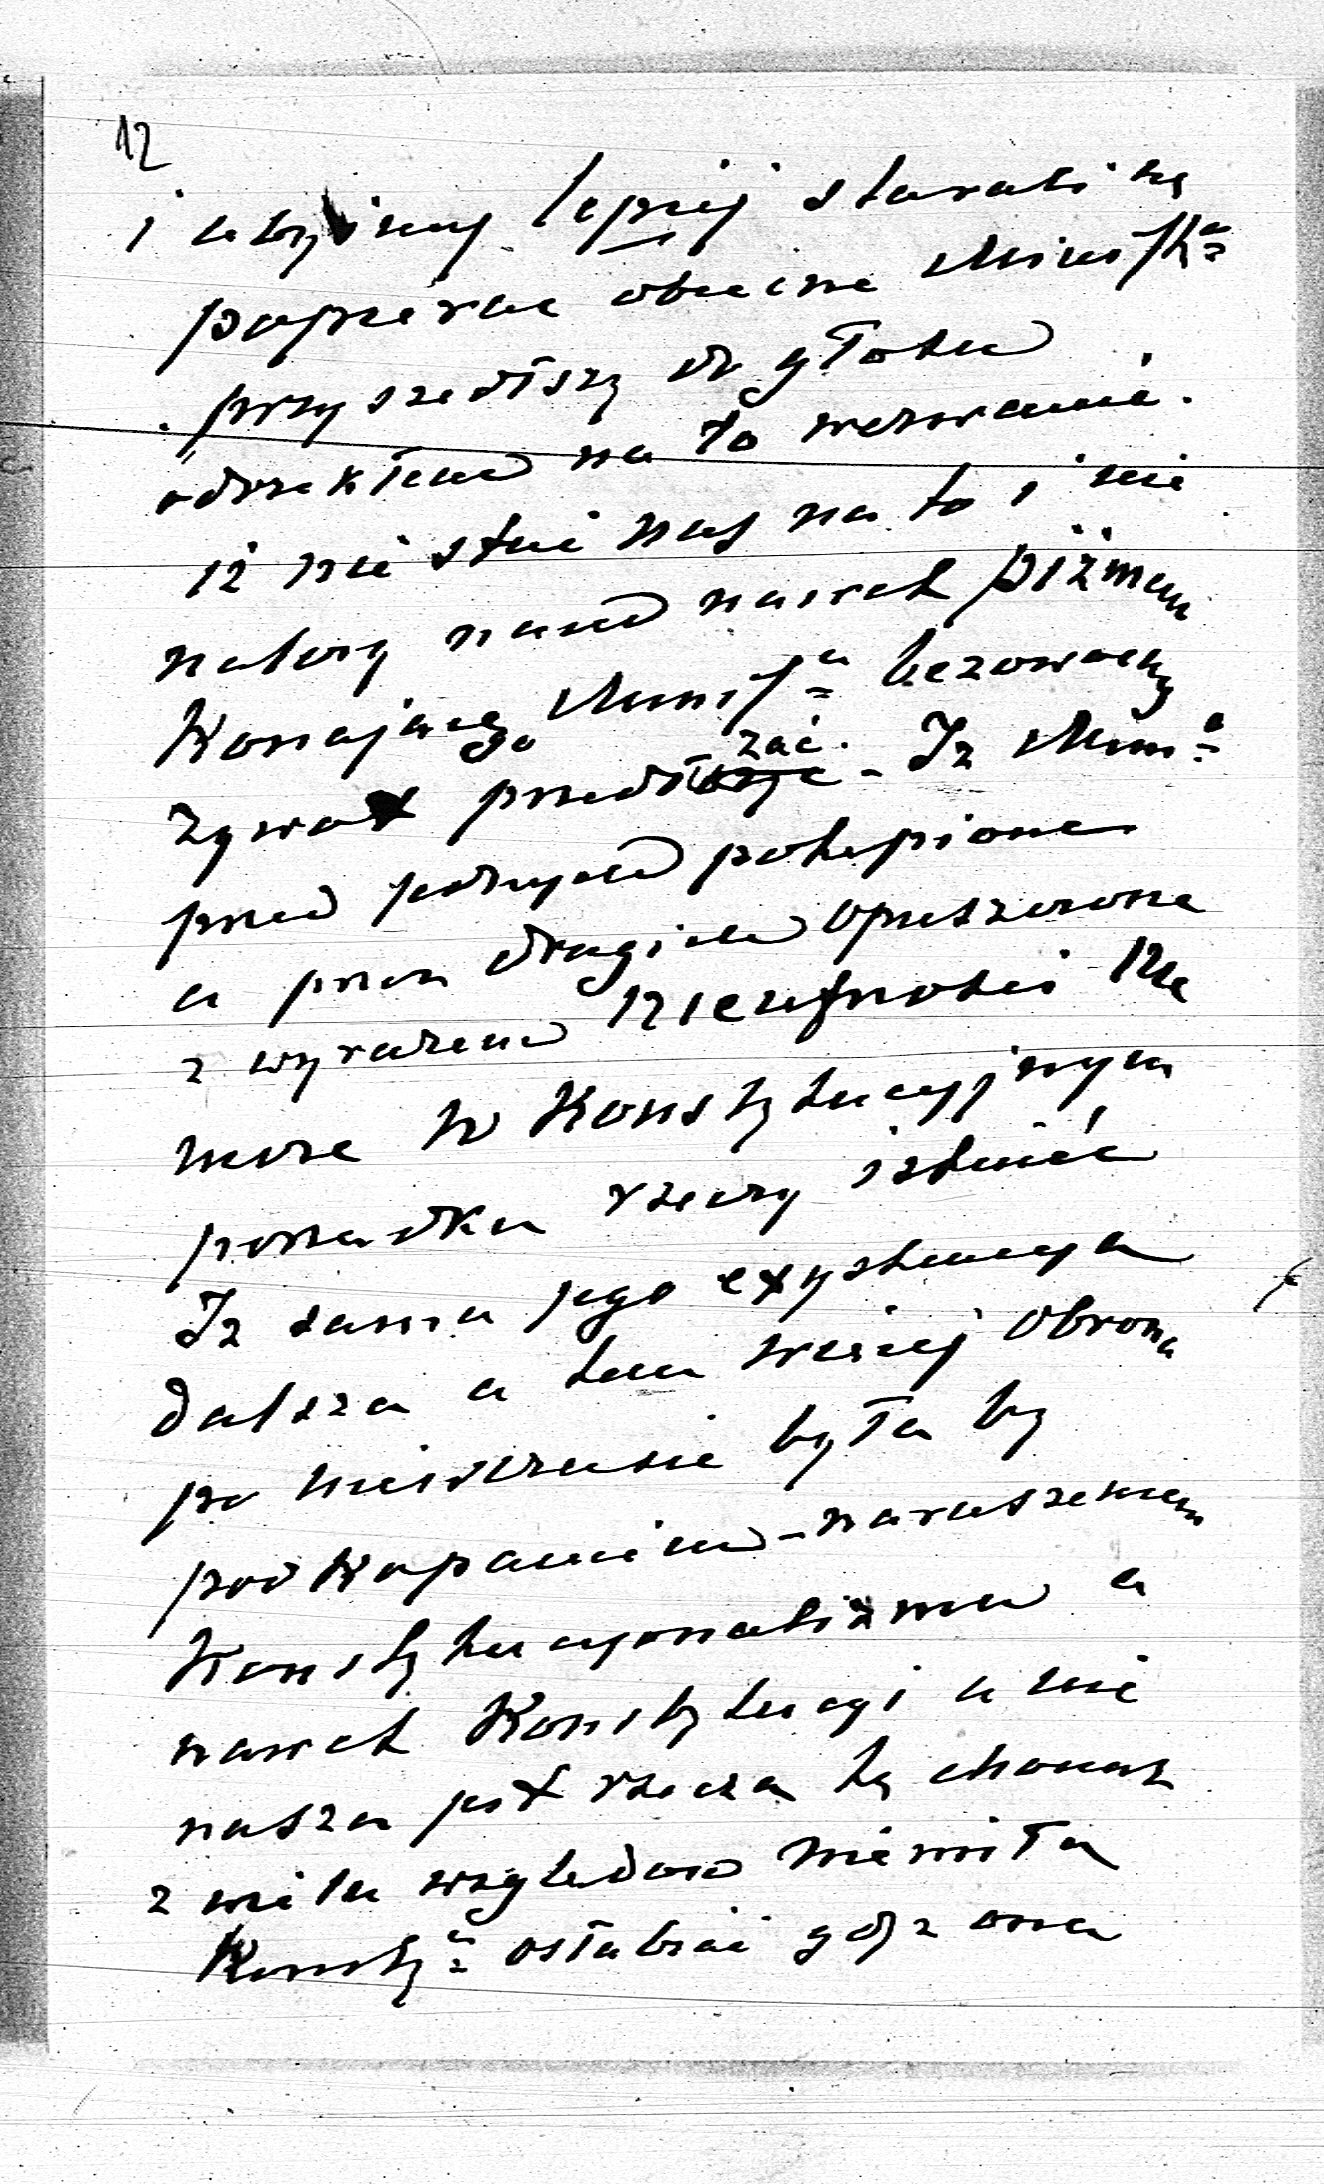 12
i abyśmy lepiej starali się
popierać obecne Minist<sup>a</sup>
przyszedłszy do głosu
odrzekłem na to wezwanie.
iż nie stać nas na to i nie
należy nam nawet piżmem
Konającego Minist<sup>a</sup> bezowocny
żywot przedłużać. – Iż Min<sup>a</sup>
przed jednych potępione
a przez drugich opuszczone
z wyrazem nieufności nie
może w Konstytucyjnym
porządku rzeczy istnieć
Iż sama jego exystencya
dalsza a tem więcej obrona
po niewczasie była by
podkopaniem – naruszeniem
Konstytucyonalizmu a
nawet Konstytucyi a nie
nasza jest rzeczą tę chociaż
z wielu względów niemiła
Konsty<sup>a</sup> osłabiać gdyż ona